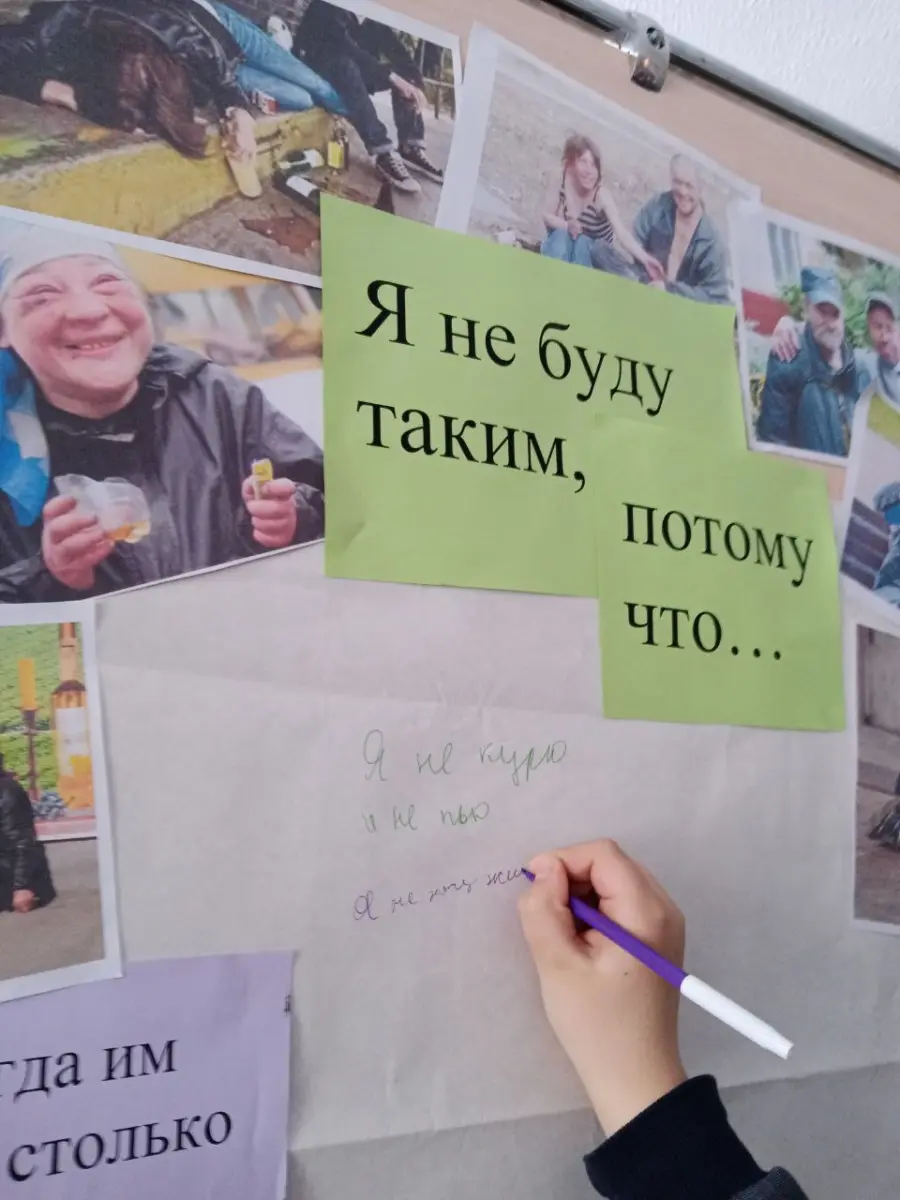 Я не буду
таким,
потому
что...
Я не курю
и не пью
Я не хочу жи
гда им
столько